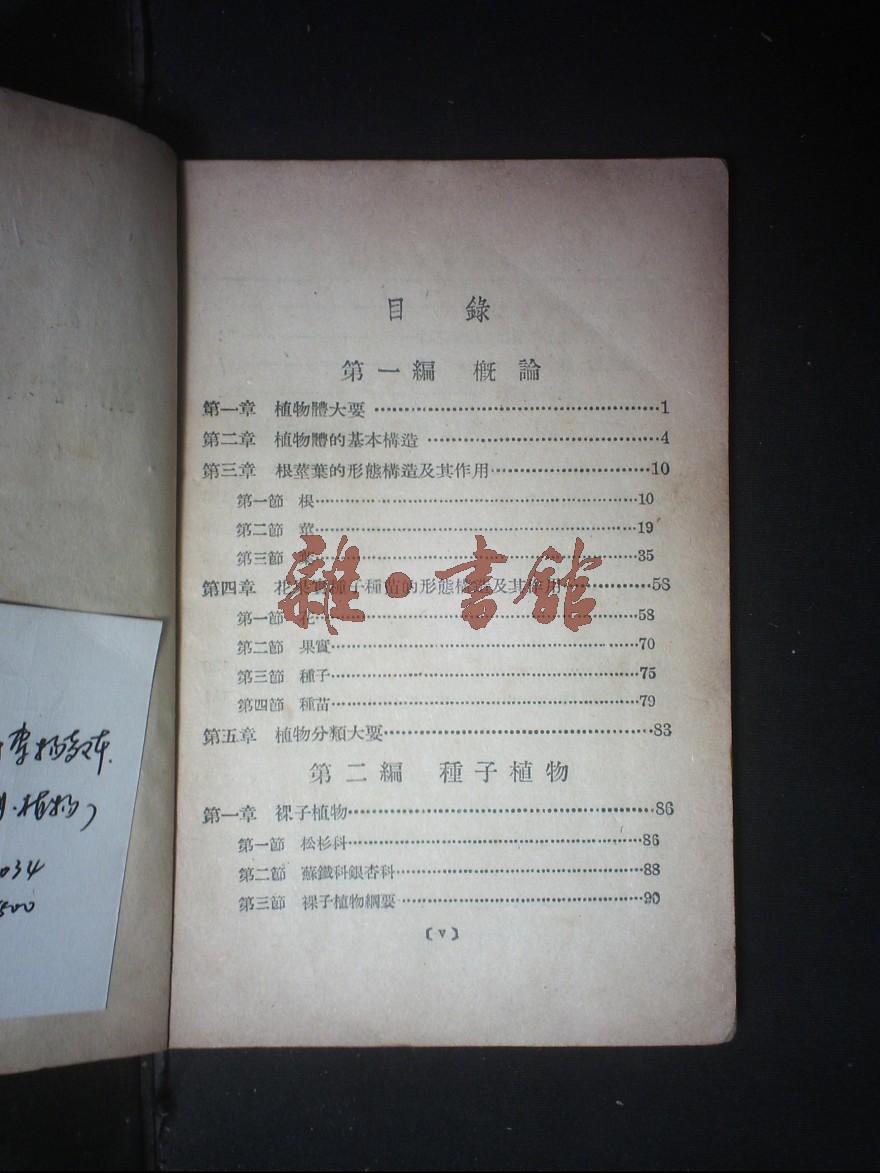 目錄
第一編 概論
第一章 植物體大要 1
第二章 植物體的基本構造 4
第三章 根莖葉的形態構造及其作用 10
第一節 根 10
第二節 莖 19
第三節 35
第四章 花果實種子種苗的形態構造及其作用 58
第一節 花 58
第二節 果實 70
第三節 種子 75
第四節 種苗 79
第五章 植物分類大要 83
第二編 種子植物
第一章 裸子植物 86
第一節 松杉科 86
第二節 蘇鐵科銀杏科 88
第三節 裸子植物綱要 90
〔v〕
雜·書館
植物
034
500